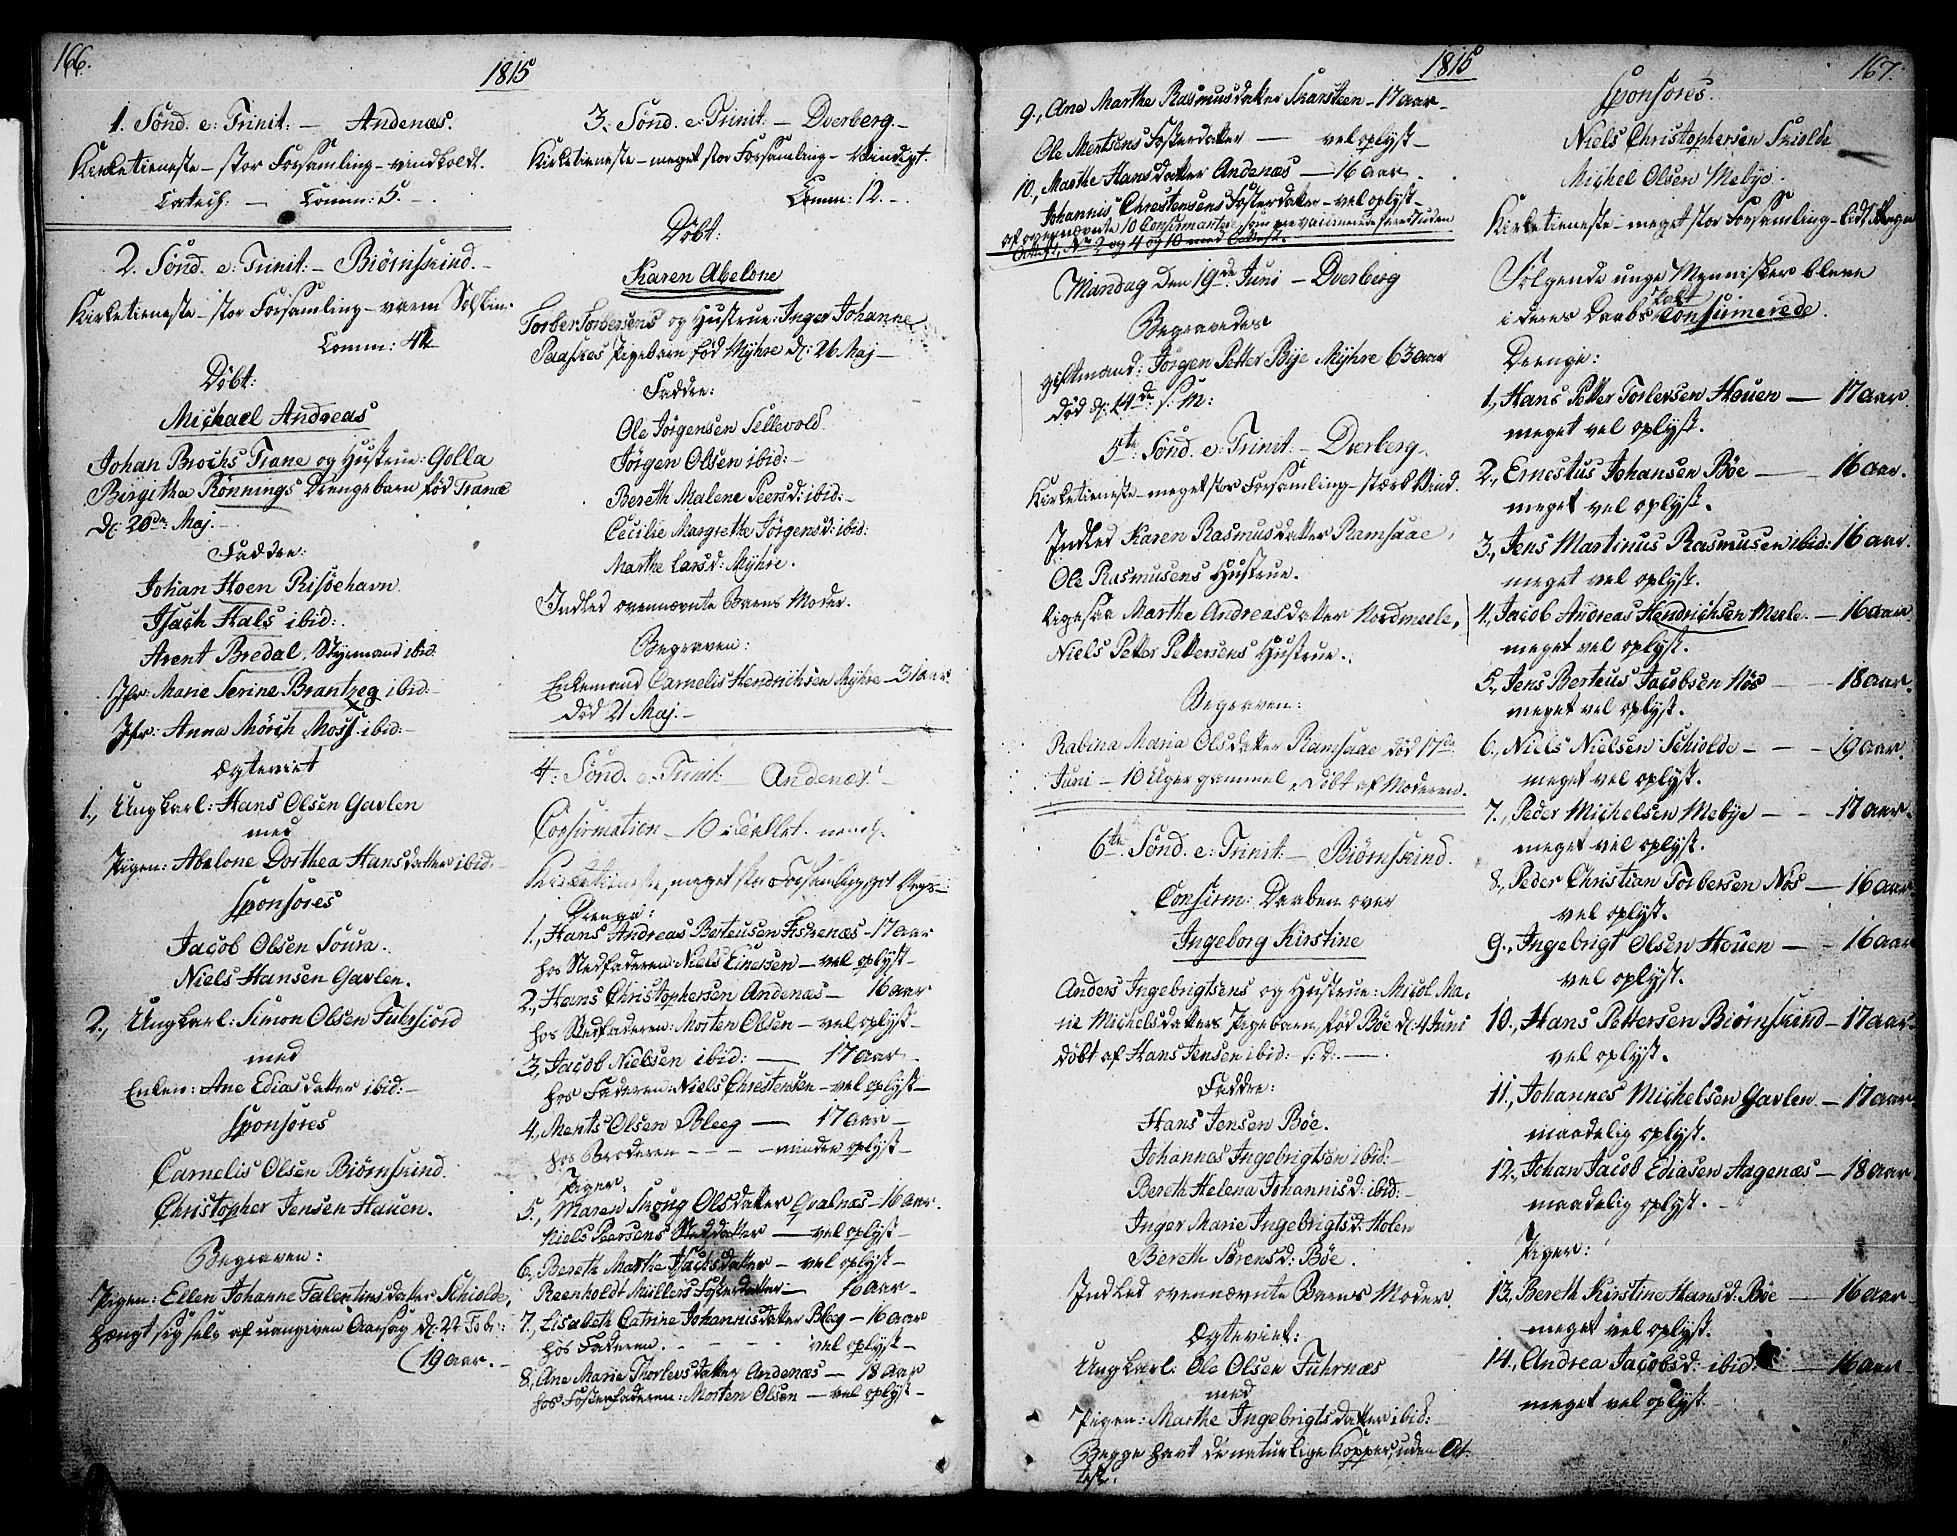 166.
1815
1. Sønd. e: Trinit: — Andenæs.
Kirketieneste – stor Forsamling – vindkoldt.
Catech: — Comm: 5. –
2. Sønd. e: Trinit: – Biørnskind. –
Kirketieneste – stor Forsamling – varm Solskin.
Comm: 42
Døbt:
Michael Andreas
Johan Brochs Trane og Hustrue: Golla
Birgitha Rönnings Drengebarn fød Tranæ
d: 20de Maj. –
Faddre:
Johan Hoen Risøehavn.
Isach Hals ibid:.
Arent Bredal, Styrmand ibid.
Jfr: Marie Serine Brantzeg ibid: –
Jfr: Anna Mörch Moss ibid: –
Ægteviet
1., Ungkarl: Hans Olsen Gavlen
med
Pigen: Abelone Dorthea Hansdatter ibid. –
Sponsores
Jacob Olsen Soura.
Niels Hansen Gavlen.
2., Ungkarl: Simon Olsen Fuhrsiord
med
Enken: Ane Ediasdatter ibid: –
Sponsores
Carnelis Olsen Biörnskind.
Christopher Jensen Hauen.
Begraven:
Pigen: Ellen Johanne Falentinsdatter Schiolde,
hængt sig selv af uangiven Aarsag d: 22 Febr:
(19 aar. –
3. Sønd. e: Trinit. – Dverberg. –
Kirketieneste – meget stor Forsamling – Vindigt.
Comm: 12. –
Døbt:
Karen Abelone
Torber Torbersens og Hustrue: Inger Johanne
Paaskes Pigebarn fød Myhre d: 26 Maj –
Faddre:
Ole Jörgensen Sellevold.
Jörgen Olsen ibid: –
Bereth Malene Peersd: ibid: –
Cecilie Margretha Jörgensd: ibid:
Marthe Larsd: Myhre.
Indled ovennævnte Barns Moder.
Begraven:
Enkemand Carnelis Hendrichsen Myhre – 31 aar.
død 21 Maj. –
4. Sønd. e. Trinit. Andenæs
Confirmation – 10
Kirketieneste, meget stor Forsamling
Drenge:
1., Hans Andreas Berteusen Fiskenæs – 17 aar
hos Stedfaderen: Niels Einersen – vel oplyst –
2., Hans Christophersen Andenæs – 16 aar
hos Stedfaderen: Morten Olsen – vel oplyst –
3., Jacob Nielsen ibid: — 17 aar –
hos Faderen: Niels Chrestensen – vel oplyst –
4., Ments Olsen Bleeg — 17 aar –
hos Broderen – – – – minder oplyst –
Piger:
5., Maren Snong Olsdatter Qvalnæs – 16 aar.
Niels Peersens Steddatter — vel oplyst –
6., Bereth Marthe Isachsdatter – vel oplyst –
Reenholdt Müllers Fosterdatter – 16 aar –
7., Lisabeth Catrine Johannisdatter Bleeg – 16 aar
hos Faderen. – – – vel oplyst –
8., Ane Marie Thorlevsdatter Andenæs – 18 aar
hos Fosterfaderen: Morten Olsen – vel oplyst –
1815
167.
9., Ane Marthe Rasmusdatter Skarsteen – 17 aar –
Ole Mentsens Fosterdatter — vel oplyst –
10., Marthe Hansdatter Andenæs — 16 aar.
Johannis Chrestensens Fosterdatter – vel oplyst –
af ovennævnte 10 Confirmanter, som
No 2 og 4 og 10 med
Mandag den 19de Juni – Dverberg
Begravedes
giftmand: Jörgen Petter Bye Myhre 63 aar
død d: 14de s. M:
5te Sønd. e: Trinit. – Dverberg.
Kirketieneste – meget stor Forsamling – stærk Vind.
Indled Karen Rasmusdatter Ramsaae,
Ole Rasmusens Hustrue.
ligesaa Marthe Andreasdatter Nordmeele,
Niels Petter Pettersens Hustrue.
Begraven:
Rabina Maria Olsdatter Ramsaae død 17de
Juni – 10 Uger gammel, døbt af Moderen.
6te Sønd. e: Trinit – Biørnskind.
Confirm: Daaben over
Ingeborg Kirstine
Anders Ingebrigtsens og Hustrue: Micol Ma-
rie Michelsdatters Pigebarn, fød Böe d: 4 Juni
døbt af Hans Jensen ibid: s: D: —
Faddre:
Hans Jensen Böe.
Johannes Ingebrigtsen ibid: –
Bereth Helena Johannisd: ibid: –
Inger Marie Ingebrigtsd: Holen
Bereth Sörensd: Böe.
Indled ovennævnte Barns Moder.
Ægteviet:
Ungkarl: Ole Olsen Fuhrnæs
med
Pigen: Marthe Ingebrigtsdatter ibid: –
Begge havt de naturlige Kopper, uden At-
test.
Sponsores.
Niels Christophersen Skiolde
Michel Olsen Mebye.
Kirketieneste – meget stor Forsamling – lidt Regn
Følgende unge Mennisker bleve
i deres Daabs Pakt Confirmerede.
Drenge:
1., Hans Petter Torlevsen Hauen — 17 aar.
meget vel oplyst.
2., Ernestus Johansen Böe — 16 aar.
meget vel oplyst.
3., Jens Martinus Rasmusen ibid: 16 aar.
meget vel oplyst.
4., Jacob Andreas Hendrichsen Meele. – 16 aar
meget vel oplyst.
5., Jens Berteus Jacobsen Nös — 18 aar.
meget vel oplyst.
6., Niels Nielsen Schiolde – – – 19 aar.
meget vel oplyst.
7., Peder Michelsen Mebye – – – 17 aar.
meget vel oplyst.
8., Peder Christian Torbersen Nös — 16 aar
vel oplyst.
9., Ingebrigt Olsen Hauen — – 16 aar
vel oplyst.
10., Hans Pettersen Biörnskind – 17 aar.
vel oplyst.
11., Johannes Michelsen Gavlen – 17 aar
maadelig oplyst.
12., Johan Jacob Ediasen Aagenæs – 18 aar
maadelig oplyst.
Piger:
13., Bereth Kirstine Hansd: Böe — 16 aar
meget vel oplyst.
14., Andrea Jacobsd: ibid: — 16 aar
meget vel oplyst.